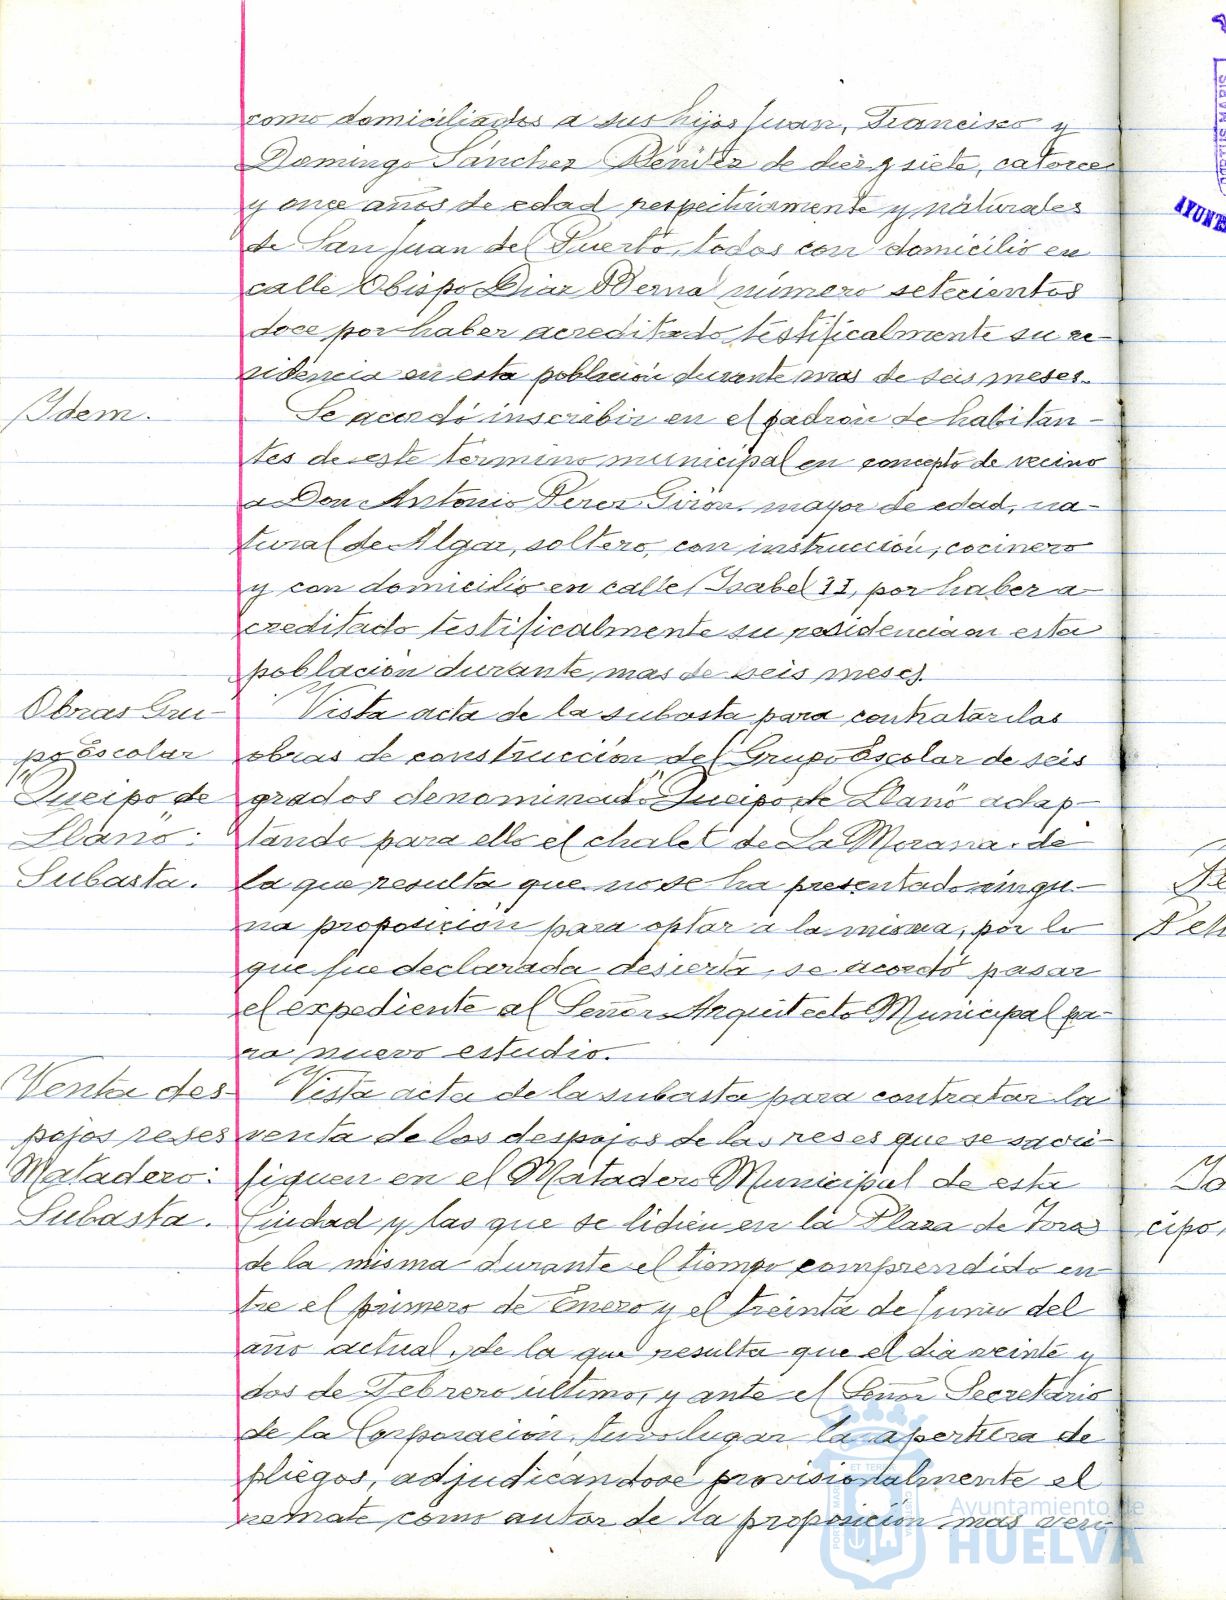 como domiciliados a sus hijos Juan, Francisco y
Domingo Sánchez Benítez de diez y siete, catorce
y once años de edad respectivamente y naturales
de San Juan del Puerto, todos con domicilio en
calle Obispo Diaz Bernal número setecientos
doce por haber acreditado testificalmente su re-
sidencia en esta población durante mas de seis meses.
Idem.
Se acordó inscribir en el padrón de habitan-
tes de este término municipal en concepto de vecino
a Don Antonio Perez Girón, mayor de edad, na-
tural de Algar, soltero, con instrucción, cocinero
y con domicilio en calle Isabel II, por haber a-
creditado testificalmente su residencia en esta
población durante mas de seis meses.
Obras Gru-
po Escolar
"Queipo de
Llano":
Subasta.
Vista acta de la subasta para contratar las
obras de construcción del Grupo Escolar de seis
grados denominado "Queipo de Llano" adap-
tando para ello el chalet de La Morana, de
la que resulta que no se ha presentado ningu-
na proposición para optar a la misma, por lo
que fue declarada desierta, se acordó pasar
el expediente al Señor Arquitecto Municipal pa-
ra nuevo estudio.
Venta des-
pojos reses
Matadero:
Subasta.
Vista acta de la subasta para contratar la
venta de los despojos de las reses que se sacri-
fiquen en el Matadero Municipal de esta
Ciudad y las que se lidien en la Plaza de Toros
de la misma durante el tiempo comprendido en-
tre el primero de Enero y el treinta de Junio del
año actual, de la que resulta que el dia veinte y
dos de Febrero último, y ante el Señor Secretario
de la Corporación, tuvo lugar la apertura de
pliegos, adjudicándose provisionalmente el
remate como autor de la proposición mas
Ayuntamiento de
HUELVA